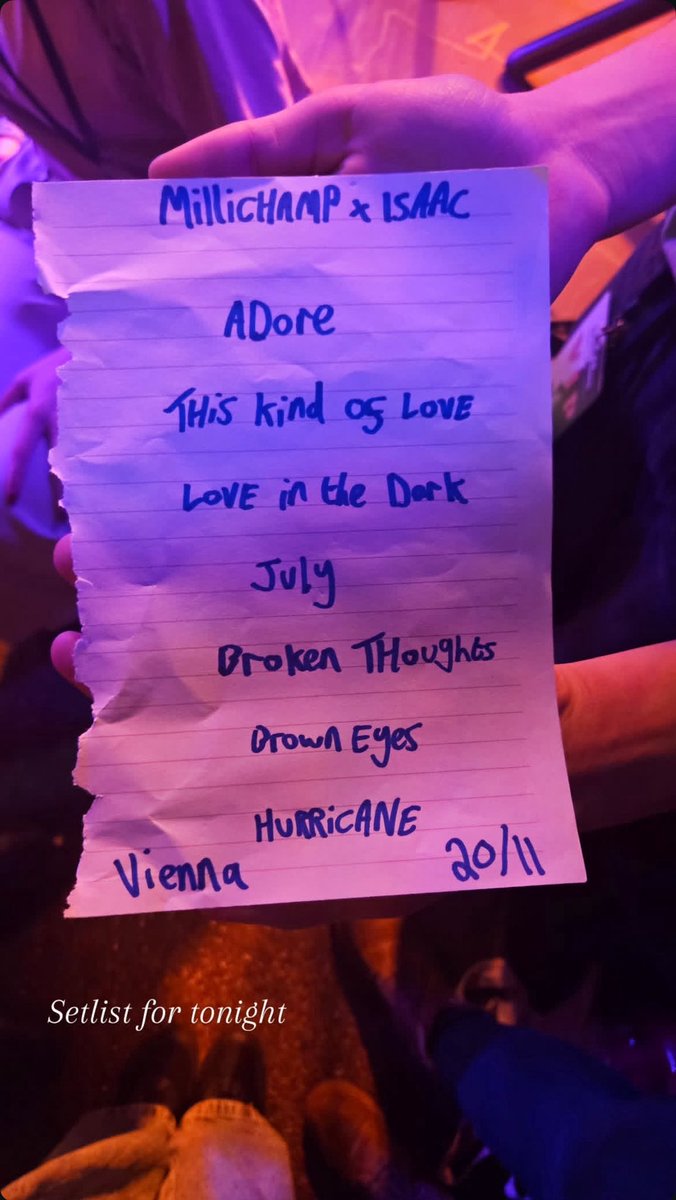 MilliCHAMP x ISAAC
ADore
THiS kind of LOVE
LOVE in the Dark
July
Broken THoughts
Brown Eyes
HURRiCANE
Vienna 20/11
Setlist for tonight